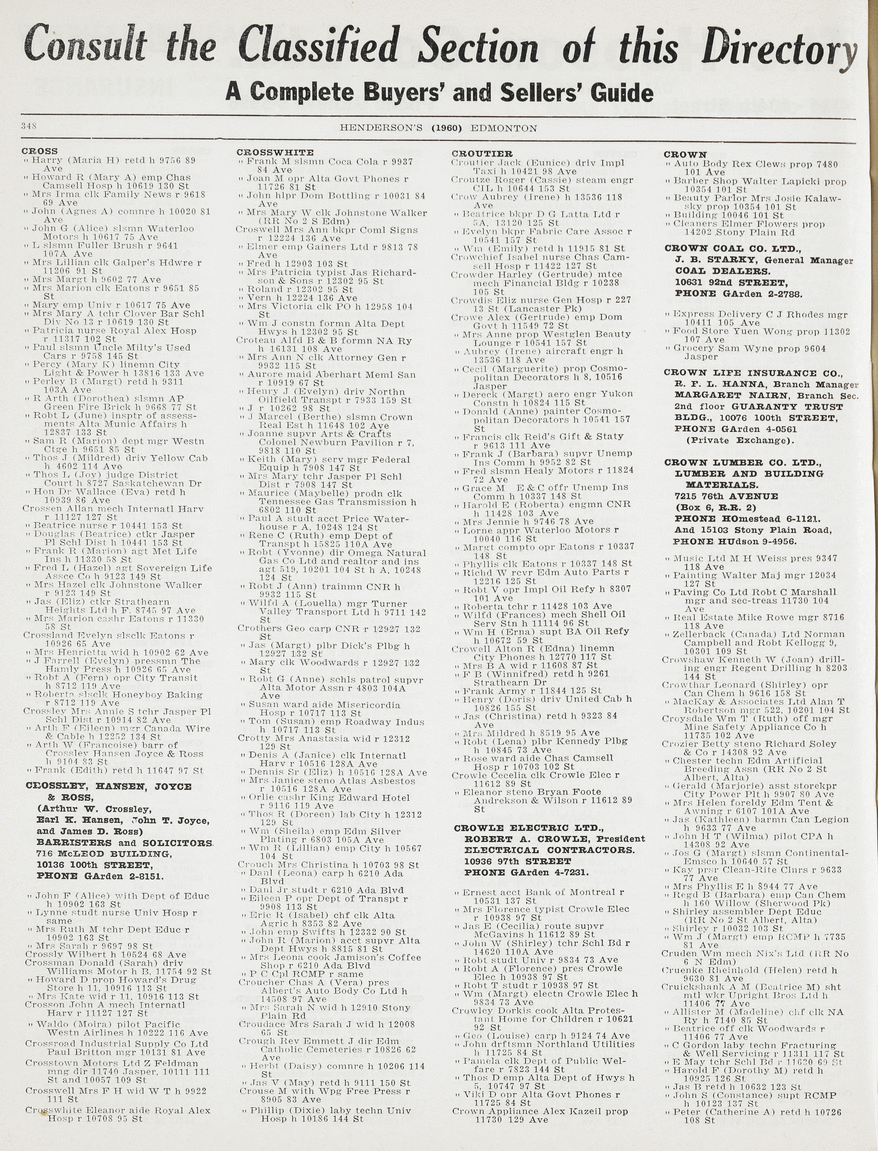 Consult the Classified Section of this Directory
A Complete Buyers' and Sellers' Guide
348
HENDERSON'S (1960) EDMONTON
CROSS
" Harry (Maria H) retd h 9756 89
Ave
" Howard R (Mary A) emp Chas
Camsell Hosp h 10619 130 St
" Mrs Irma clk Family News r 9618
69 Ave
" John (Agnes A) comnre h 10020 81
Ave
" John G (Alice) slsmn Waterloo
Motors h 10617 75 Ave
" L slsmn Fuller Brush r 9641
107A Ave
" Mrs Lillian clk Galper's Hdwre r
11206 91 St
" Mrs Margt h 9602 77 Ave
" Mrs Marion clk Eatons r 9651 85
St
" Mary emp Univ r 10617 75 Ave
" Mrs Mary A tchr Clover Bar Schl
Div No 13 r 10619 130 St
" Patricia nurse Royal Alex Hosp
r 11317 102 St
" Paul slsmn Uncle Milty's Used
Cars r 9758 145 St
" Percy (Mary K) linemn City
Light & Power h 13816 133 Ave
" Perley B (Margt) retd h 9311
103A Ave
" R Arth (Dorothea) slsmn AP
Green Fire Brick h 9668 77 St
" Robt L (June) insptr of assess-
ments Alta Munic Affairs h
12837 133 St
" Sam R (Marion) dept mgr Westn
Ctge h 9651 85 St
" Thos J (Mildred) driv Yellow Cab
h 4602 114 Ave
" Thos L (Joy) judge District
Court h 8727 Saskatchewan Dr
" Hon Dr Wallace (Eva) retd h
10939 86 Ave
Crossen Allan mech Internatl Harv
r 11127 127 St
" Beatrice nurse r 10441 153 St
" Douglas (Beatrice) ctkr Jasper
Pl Schl Dist h 10441 153 St
" Frank R (Marion) agt Met Life
Ins h 11330 58 St
" Fred L (Hazel) agt Sovereign Life
Assce Co h 9123 149 St
" Mrs Hazel clk Johnstone Walker
r 9123 149 St
" Jas (Eliz) ctkr Strathearn
Heights Ltd h F. 8745 97 Ave
" Mrs Marion cashr Eatons r 11330
58 St
Crossland Evelyn slsclk Eatons r
10926 65 Ave
" Mrs Henrietta wid h 10902 62 Ave
" J Farrell (Evelyn) pressmn The
Hamly Press h 10926 65 Ave
" Robt A (Fern) opr City Transit
h 8712 119 Ave
" Roberta slsclk Honeyboy Baking
r 8712 119 Ave
Crossley Mrs Annie S tchr Jasper Pl
Schl Dist r 10914 82 Ave
" Arth F (Eileen) mgr Canada Wire
& Cable h 12252 134 St
" Arth W (Francoise) barr of
Crossley Hansen Joyce & Ross
h 9104 83 St
" Frank (Edith) retd h 11647 97 St
CROSSLEY, HANSEN, JOYCE
& ROSS,
(Arthur W. Crossley,
Earl K. Hansen, John T. Joyce,
and James D. Ross)
BARRISTERS and SOLICITORS
716 McLEOD BUILDING,
10136 100th STREET,
PHONE GArden 2-8151.
" John F (Alice) with Dept of Educ
h 10902 163 St
" Lynne studt nurse Univ Hosp r
same
" Mrs Ruth M tchr Dept Educ r
10902 163 St
" Mrs Sarah r 9697 98 St
Crossly Wilbert h 10524 68 Ave
Crossman Donald (Sarah) driv
Williams Motor h B, 11754 92 St
" Howard D prop Howard's Drug
Store h 11, 10916 113 St
" Mrs Kate wid r 11, 10916 113 St
Crosson John A mech Internatl
Harv r 11127 127 St
" Waldo (Moira) pilot Pacific
Westn Airlines h 10222 116 Ave
Crossroad Industrial Supply Co Ltd
Paul Britton mgr 10131 81 Ave
Crosstown Motors Ltd Z Feldman
mng dir 11740 Jasper, 10111 111
St and 10057 109 St
Crosswell Mrs F H wid W T h 9922
111 St
Crosswhite Eleanor aide Royal Alex
Hosp r 10708 95 St
CROSSWHITE
" Frank M slsmn Coca Cola r 9937
84 Ave
" Joan M opr Alta Govt Phones r
11726 81 St
" John hlpr Dom Bottling r 10031 84
Ave
" Mrs Mary W clk Johnstone Walker
(RR No 2 S Edm)
Croswell Mrs Ann bkpr Coml Signs
r 12224 136 Ave
" Elmer emp Gainers Ltd r 9813 78
Ave
" Fred h 12903 103 St
" Mrs Patricia typist Jas Richard-
son & Sons r 12302 95 St
" Roland r 12302 95 St
" Vern h 12224 136 Ave
" Mrs Victoria clk PO h 12958 104
St
" Wm J constn formn Alta Dept
Hwys h 12302 95 St
Croteau Alfd B & B formn NA Ry
h 16131 108 Ave
" Mrs Ann N clk Attorney Gen r
9932 115 St
" Aurore maid Aberhart Meml San
r 10919 67 St
" Henry J (Evelyn) driv Northn
Oilfield Transpt r 7933 159 St
" J r 10262 98 St
" J Marcel (Berthe) slsmn Crown
Real Est h 11648 102 Ave
" Joanne supvr Arts & Crafts
Colonel Newburn Pavilion r 7,
9818 110 St
" Keith (Mary) serv mgr Federal
Equip h 7908 147 St
" Mrs Mary tchr Jasper Pl Schl
Dist r 7908 147 St
" Maurice (Maybelle) prodn clk
Tennessee Gas Transmission h
6802 110 St
" Paul A studt acct Price Water-
house r A, 10248 124 St
" Rene C (Ruth) emp Dept of
Transpt h 15825 110A Ave
" Robt (Yvonne) dir Omega Natural
Gas Co Ltd and realtor and ins
agt 519, 10201 104 St h A, 10248
124 St
" Robt J (Ann) trainmn CNR h
9932 115 St
" Wilfd A (Louella) mgr Turner
Valley Transport Ltd h 9711 142
St
Crothers Geo carp CNR r 12927 132
St
" Jas (Margt) plbr Dick's Plbg h
12927 132 St
" Mary clk Woodwards r 12927 132
St
" Robt G (Anne) schls patrol supvr
Alta Motor Assn r 4803 104A
Ave
" Susan ward aide Misericordia
Hosp r 10717 113 St
" Tom (Susan) emp Roadway Indus
h 10717 113 St
Crotty Mrs Anastasia wid r 12312
129 St
" Denis A (Janice) clk Internatl
Harv r 10516 128A Ave
" Dennis Sr (Eliz) h 10516 128A Ave
" Mrs Janice steno Atlas Asbestos
r 10516 128A Ave
" Orlie cashr King Edward Hotel
r 9116 119 Ave
" Thos R (Doreen) lab City h 12312
129 St
" Wm (Sheila) emp Edm Silver
Plating r 6803 105A Ave
" Wm R (Lillian) emp City h 10567
104 St
Crouch Mrs Christina h 10703 98 St
" Danl (Leona) carp h 6210 Ada
Blvd
" Danl Jr studt r 6210 Ada Blvd
" Eileen P opr Dept of Transpt r
9908 113 St
" Eric R (Isabel) chf clk Alta
Agrich h 8353 82 Ave
" John emp Swifts h 12332 90 St
" John R (Marion) acct supvr Alta
Dept Hwys h 8815 81 St
" Mrs Leona cook Jamison's Coffee
Shop r 6210 Ada Blvd
" P C Cpl RCMP r same
Croucher Chas A (Vera) pres
Albert's Auto Body Co Ltd h
14508 97 Ave
" Mrs Sarah N wid h 12910 Stony
Plain Rd
Croudace Mrs Sarah J wid h 12008
65 St
Crough Rev Emmett J dir Edm
Catholic Cemeteries r 10826 62
Ave
" Herbt (Daisy) comnre h 10206 114
St
" Jas V (May) retd h 9111 150 St
Crouse M with Wpg Free Press r
8905 83 Ave
" Phillip (Dixie) laby techn Univ
Hosp h 10186 144 St
CROUTIER
Croutier Jack (Eunice) driv Impl
Taxi h 10421 98 Ave
Croutze Roger (Cassie) steam engr
CIL h 10644 153 St
Crow Aubrey (Irene) h 13536 118
Ave
" Beatrice bkpr D G Latta Ltd r
5A, 13120 125 St
" Evelyn bkpr Fabric Care Assoc r
10541 157 St
" Wm (Emily) retd h 11915 81 St
Crowchief Isabel nurse Chas Cam-
sell Hosp r 11422 127 St
Crowder Harley (Gertrude) mtce
mech Financial Bldg r 10238
105 St
Crowdis Eliz nurse Gen Hosp r 227
13 St (Lancaster Pk)
Crowe Alex (Gertrude) emp Dom
Govt h 11549 72 St
" Mrs Anne prop Westglen Beauty
Lounge r 10541 157 St
" Aubrey (Irene) aircraft engr h
13536 118 Ave
" Cecil (Marguerite) prop Cosmo-
politan Decorators h 8, 10516
Jasper
" Dereck (Margt) aero engr Yukon
Constn h 10824 115 St
" Donald (Anne) painter Cosmo-
politan Decorators h 10541 157
St
" Francis clk Reid's Gift & Staty
r 9613 111 Ave
" Frank J (Barbara) supvr Unemp
Ins Comm h 9952 82 St
" Fred slsmn Healy Motors r 11824
72 Ave
" Grace M E & C offr Unemp Ins
Comm h 10337 148 St
" Harold E (Roberta) engmn CNR
h 11428 103 Ave
" Mrs Jennie h 9746 78 Ave
" Lorne appr Waterloo Motors r
10040 116 St
" Margt compto opr Eatons r 10337
148 St
" Phyllis clk Eatons r 10337 148 St
" Richd W recvr Edm Auto Parts r
12216 125 St
" Robt V opr Impl Oil Refy h 8307
101 Ave
" Roberta tchr r 11428 103 Ave
" Wilfd (Frances) mech Shell Oil
Serv Stn h 11114 96 St
" Wm H (Erna) supt BA Oil Refy
h 10672 59 St
Crowell Alton R (Edna) linemn
City Phones h 12770 117 St
" Mrs B A wid r 11608 87 St
" F B (Winnifred) retd h 9261
Strathearn Dr
" Frank Army r 11844 125 St
" Henry (Doris) driv United Cab h
10826 155 St
" Jas (Christina) retd h 9323 84
Ave
" Mrs Mildred h 8519 95 Ave
" Robt (Lena) plbr Kennedy Plbg
h 10845 73 Ave
" Rose ward aide Chas Camsell
Hosp r 10703 102 St
Crowle Cecelia clk Crowle Elec r
11612 89 St
" Eleanor steno Bryan Foote
Andrekson & Wilson r 11612 89
St
CROWLE ELECTRIC LTD.,
ROBERT A. CROWLE, President
ELECTRICAL CONTRACTORS.
10936 97th STREET
PHONE GArden 4-7231.
" Ernest acct Bank of Montreal r
10531 137 St
" Mrs Florence typist Crowle Elec
r 10938 97 St
" Jas E (Cecilia) route supvr
McGavins h 11612 89 St
" John W (Shirley) tchr Schl Bd r
14620 110A Ave
" Robt studt Univ r 9834 73 Ave
" Robt A (Florence) pres Crowle
Elec h 10938 97 St
" Robt T studt r 10938 97 St
" Wm (Margt) electn Crowle Elec h
9834 73 Ave
Crowley Dorkis cook Alta Protes-
tant Home for Children r 10621
92 St
" Geo (Louise) carp h 9124 74 Ave
" John drftsmn Northland Utilities
h 11725 84 St
" Pamela clk Dept of Public Wel-
fare r 7823 144 St
" Thos D emp Alta Dept of Hwys h
5, 10747 97 St
" Viki D opr Alta Govt Phones r
11725 84 St
Crown Appliance Alex Kazeil prop
11730 129 Ave
CROWN
" Auto Body Rex Clews prop 7480
101 Ave
" Barber Shop Walter Lapicki prop
10354 101 St
" Beauty Parlor Mrs Josie Kalaw-
sky prop 10354 101 St
" Building 10046 101 St
" Cleaners Elmer Flowers prop
14202 Stony Plain Rd
CROWN COAL CO. LTD.,
J. B. STARKY, General Manager
COAL DEALERS.
10631 92nd STREET,
PHONE GArden 2-2788.
" Express Delivery C J Rhodes mgr
10411 105 Ave
" Food Store Yuen Wong prop 11302
107 Ave
" Grocery Sam Wyne prop 9604
Jasper
CROWN LIFE INSURANCE CO.,
R. F. L. HANNA, Branch Manager
MARGARET NAIRN, Branch Sec.
2nd floor GUARANTY TRUST
BLDG., 10076 100th STREET,
PHONE GArden 4-0561
(Private Exchange).
CROWN LUMBER CO. LTD.,
LUMBER AND BUILDING
MATERIALS.
7215 76th AVENUE
(Box 6, R.R. 2)
PHONE HOmestead 6-1121.
And 15103 Stony Plain Road,
PHONE HUdson 9-4956.
" Music Ltd M H Weiss pres 9347
118 Ave
" Painting Walter Maj mgr 12034
127 St
" Paving Co Ltd Robt C Marshall
mgr and sec-treas 11730 104
Ave
" Real Estate Mike Rowe mgr 8716
118 Ave
" Zellerback (Canada) Ltd Norman
Campbell and Robt Kellogg 9,
10301 109 St
Crowshaw Kenneth W (Joan) drill-
ing engr Regent Drilling h 8203
144 St
Crowthar Leonard (Shirley) opr
Can Chem h 9616 158 St
" MacKay & Associates Ltd Alan T
Robertson mgr 522, 10201 104 St
Croysdale Wm T (Ruth) off mgr
Mine Safety Appliance Co h
11735 102 Ave
Crozier Betty steno Richard Soley
& Co r 14308 92 Ave
" Chester techn Edm Artificial
Breeding Assn (RR No 2 St
Albert, Alta)
" Gerald (Marjorie) asst storekpr
City Power Plt h 9907 80 Ave
" Mrs Helen foreldy Edm Tent &
Awning r 6107 101A Ave
" Jas (Kathleen) barmn Can Legion
h 9633 77 Ave
" John H T (Wilma) pilot CPA h
14308 92 Ave
" Jos G (Margt) slsmn Continental-
Emsco h 10640 57 St
" Kay prsr Clean-Rite Clnrs r 9633
77 Ave
" Mrs Phyllis E h 8944 77 Ave
" Regd B (Barbara) emp Can Chem
h 160 Willow (Sherwood Pk)
" Shirley assembler Dept Educ
(RR No 2 St Albert, Alta)
" Shirley r 10032 103 St
" Wm J (Margt) emp RCMP h 7735
81 Ave
Cruden Wm mech Nix's Ltd (RR No
6 N Edm)
Cruenke Rheinhold (Helen) retd h
9630 81 Ave
Cruickshank A M (Beatrice M) sht
mtl wkr Upright Bros Ltd h
11406 77 Ave
" Allister M (Madeline) chf clk NA
Ry h 7140 85 St
" Beatrice off clk Woodwards r
11406 77 Ave
" C Gordon laby techn Fracturing
& Well Servicing r 11311 117 St
" E May tchr Schl Bd r 11620 69 St
" Harold F (Dorothy M) retd h
10925 126 St
" Jas B retd h 10632 123 St
" John S (Constance) supt RCMP
h 10123 137 St
" Peter (Catherine A) retd h 10726
108 St